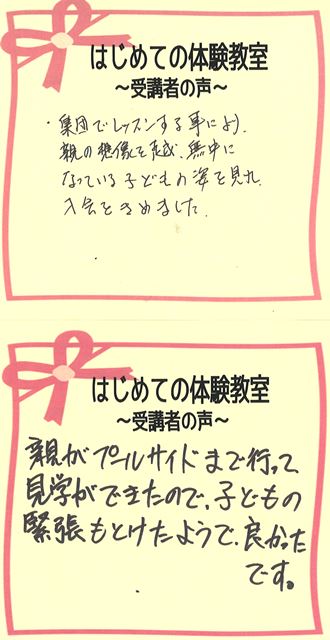 はじめての体験教室
～受講者の声～
・集団でレッスンする事により、
親の想像を超え、夢中に
なっている子どもの姿を見れ、
入会をきめました。
はじめての体験教室
～受講者の声～
親がプールサイドまで行って
見学ができたので、子どもの
緊張もとけたようで、良かった
です。